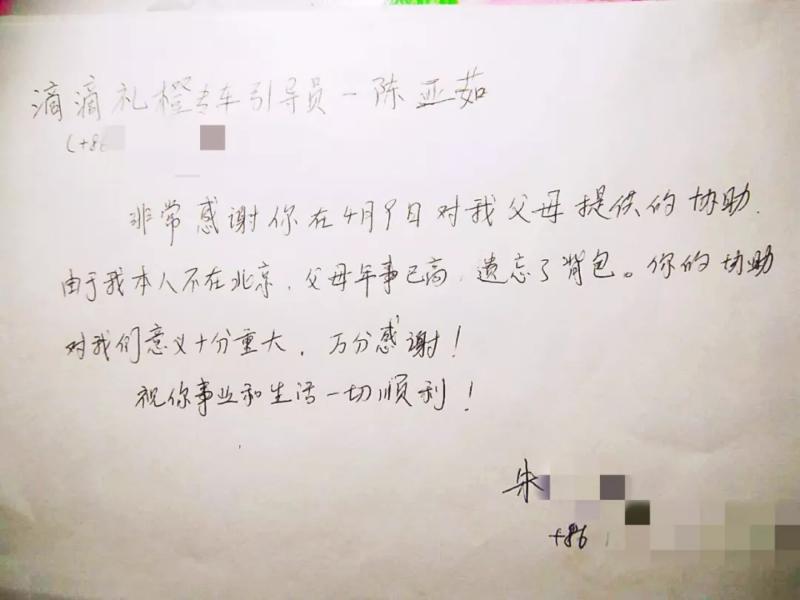 滴滴礼橙专车引导员-陈亚茹
(+86
非常感谢你在4月9日对我父母提供的协助.
由于我本人不在北京，父母年事已高，遗忘了背包。你的协助
对我们意义十分重大，万分感谢！
祝你事业和生活一切顺利！
朱
+86